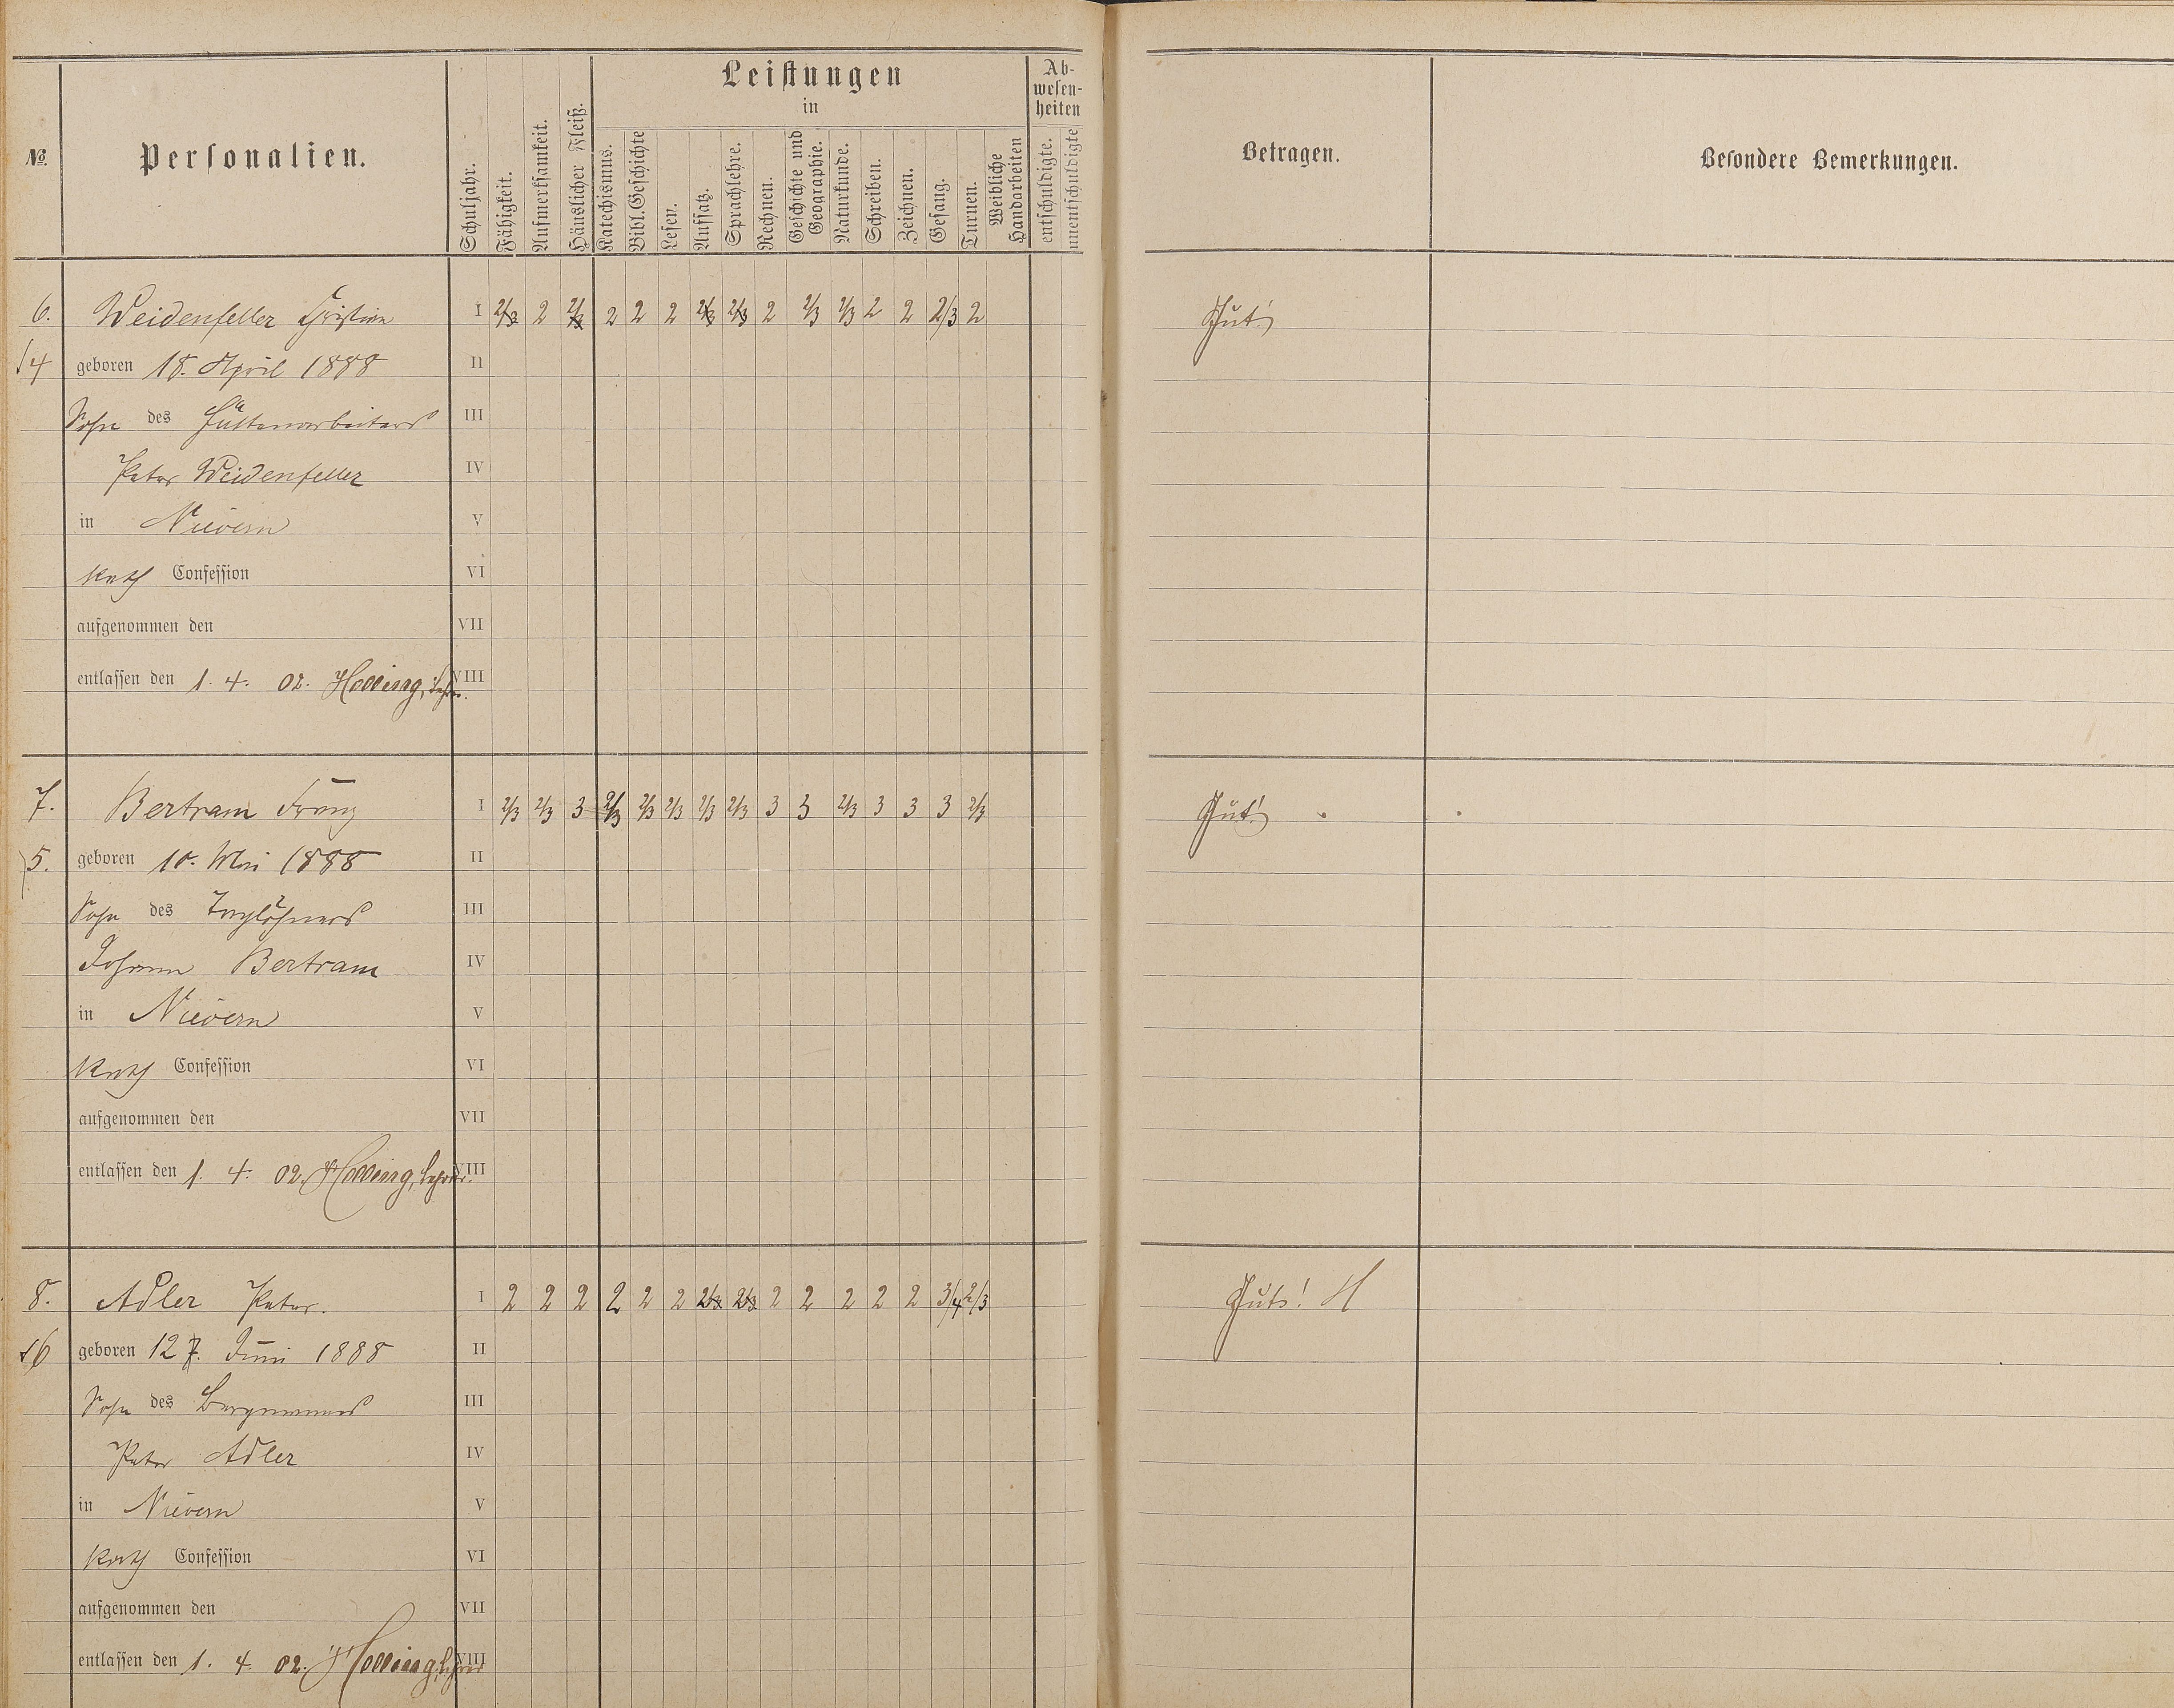 Leistungen
in
Ab-
wesen-
heiten
No.
Personalien.
Schuljahr.
Fähigkeit.
Aufmerksamkeit.
Häuslicher Fleiß.
Katechismus.
Bibl. Geschichte
Lesen.
Aufsatz.
Sprachlehre.
Rechnen.
Geschichte und
Geographie.
Naturkunde.
Schreiben.
Zeichnen.
Gesang.
Turnen.
Weibliche
Handarbeiten
entschuldigte.
unentschuldigte
Betragen.
Besondere Bemerkungen.
6. Weidenfeller Christian I 2/3 2 2/3 2 2 2 2/3 2/3 2 2/3 2/3 2 2 2/3 2 Gut!
4 geboren 18. April 1888 II
Sohn des Hüttenarbeiters III
Peter Weidenfeller IV
in Nievern V
Kath Confession VI
aufgenommen den VII
entlassen den 1. 4. 02. Lehrer. VIII
7. Bertram Franz I 2/3 2/3 3 2/3 2/3 2/3 2/3 2/3 3 3 2/3 3 3 3 2/3 Gut!
5. geboren 10. Mai 1888 II
Sohn des Taglöhners III
Johann Bertram IV
in Nievern V
Kath Confession VI
aufgenommen den VII
entlassen den 1. 4. 02. Lehrer. VIII
8. Adler Peter. I 2 2 2 2 2 2 2/3 2/3 2 2 2 2 2 3/4 2/3 H
6 geboren 12 7. Juni 1888 II
Sohn des Bergmanns III
Peter Adler IV
in Nievern V
Kath Confession VI
aufgenommen den VII
entlassen den 1. 4. 02. Lehrer VIII